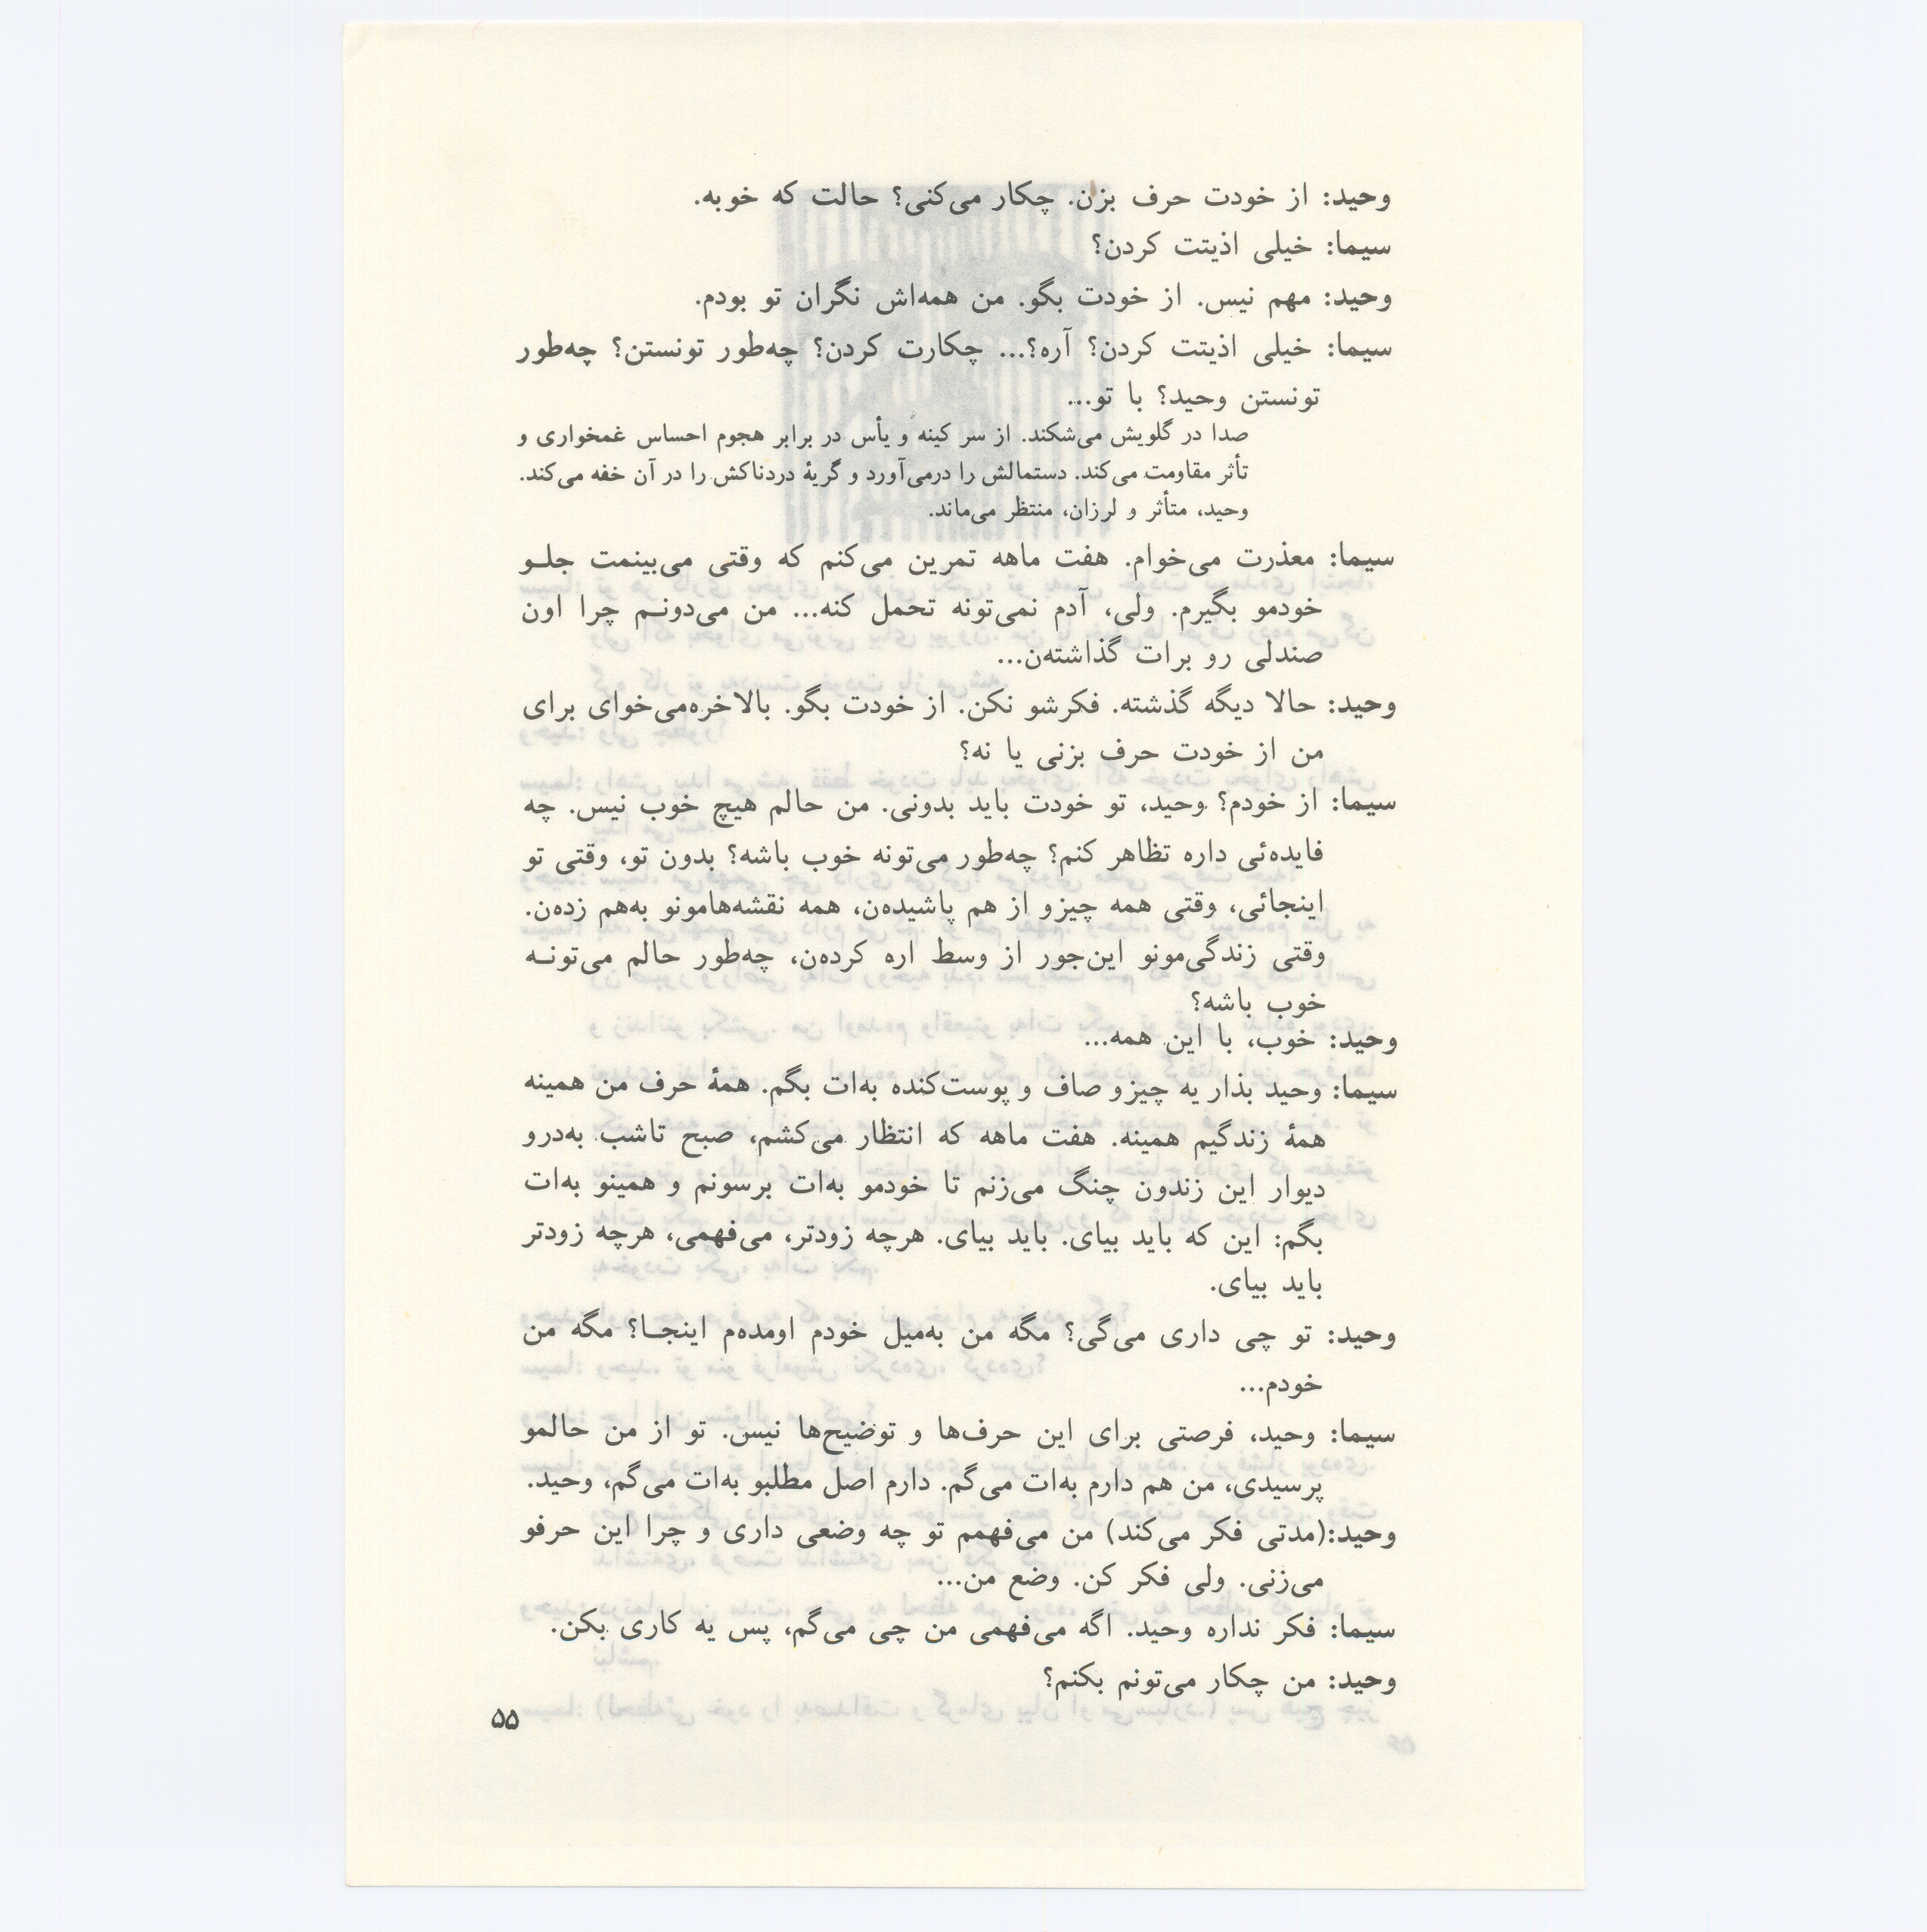 وحید: از خودت حرف بزن. چکار می‌کنی؟ حالت که خوبه.
سیما: خیلی اذیتت کردن؟
وحید: مهم نیس. از خودت بگو. من همه‌اش نگران تو بودم.
سیما: خیلی اذیتت کردن؟ آره؟... چکارت کردن؟ چه‌طور تونستن؟ چه‌طور
تونستن وحید؟ با تو...
صدا در گلویش می‌شکند. از سر کینه و یأس در برابر هجوم احساس غمخواری و
تأثر مقاومت می‌کند. دستمالش را درمی‌آورد و گریهٔ دردناکش را در آن خفه می‌کند.
وحید، متأثر و لرزان، منتظر می‌ماند.
سیما: معذرت می‌خوام. هفت ماهه تمرین می‌کنم که وقتی می‌بینمت جلـو
خودمو بگیرم. ولی، آدم نمی‌تونه تحمل کنه... من می‌دونـم چرا اون
صندلی رو برات گذاشته‌ن...
وحید: حالا دیگه گذشته. فکرشو نکن. از خودت بگو. بالاخره‌می‌خوای برای
من از خودت حرف بزنی یا نه؟
سیما: از خودم؟ وحید، تو خودت باید بدونی. من حالم هیچ خوب نیس. چه
فایده‌ئی داره تظاهر کنم؟ چه‌طور می‌تونه خوب باشه؟ بدون تو، وقتی تو
اینجائی، وقتی همه چیزو از هم پاشیده‌ن، همه نقشه‌هامونو به‌هم زده‌ن.
وقتی زندگی‌مونو این‌جور از وسط اره کرده‌ن، چه‌طور حالم می‌تونـه
خوب باشه؟
وحید: خوب، با این همه...
سیما: وحید بذار یه چیزو صاف و پوست‌کنده به‌ات بگم. همهٔ حرف من همینه
همهٔ زندگیم همینه. هفت ماهه که انتظار می‌کشم، صبح تاشب به‌درو
دیوار این زندون چنگ می‌زنم تا خودمو به‌ات برسونم و همینو به‌ات
بگم: این که باید بیای. باید بیای. هرچه زودتر، می‌فهمی، هرچه زودتر
باید بیای.
وحید: تو چی داری می‌گی؟ مگه من به‌میل خودم اومده‌م اینجـا؟ مگه من
خودم...
سیما: وحید، فرصتی برای این حرف‌ها و توضیح‌ها نیس. تو از من حالمو
پرسیدی، من هم دارم به‌ات می‌گم. دارم اصل مطلبو به‌ات می‌گم، وحید.
وحید:(مدتی فکر می‌کند) من می‌فهمم تو چه وضعی داری و چرا این حرفو
می‌زنی. ولی فکر کن. وضع من...
سیما: فکر نداره وحید. اگه می‌فهمی من چی می‌گم، پس یه کاری بکن.
وحید: من چکار می‌تونم بکنم؟
۵۵